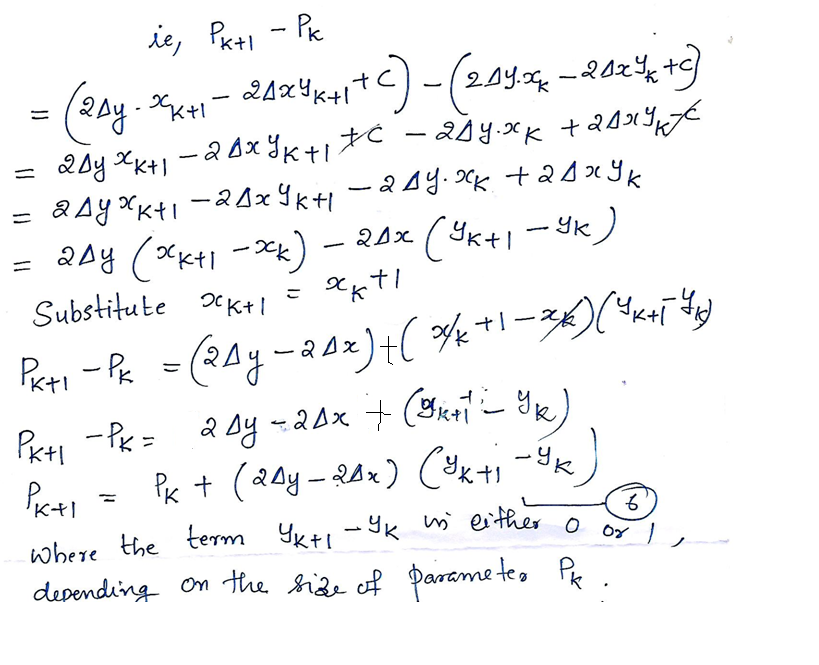 ie, P_{K+1} - P_K
= (2Δy · x_{K+1} - 2Δx y_{K+1} + C) - (2Δy · x_K - 2Δx y_K + C)
= 2Δy x_{K+1} - 2Δx y_{K+1} + C - 2Δy · x_K + 2Δx y_K - C
= 2Δy x_{K+1} - 2Δx y_{K+1} - 2Δy · x_K + 2Δx y_K
= 2Δy (x_{K+1} - x_K) - 2Δx (y_{K+1} - y_K)
Substitute x_{K+1} = x_K + 1
P_{K+1} - P_K = (2Δy - 2Δx) + (x_K + 1 - x_K)(y_{K+1} - y_K)
P_{K+1} - P_K = 2Δy - 2Δx + (y_{K+1} - y_K)
P_{K+1} = P_K + (2Δy - 2Δx) (y_{K+1} - y_K)
6
where the term y_{K+1} - y_K is either 0 or 1,
depending on the size of parameter P_K.